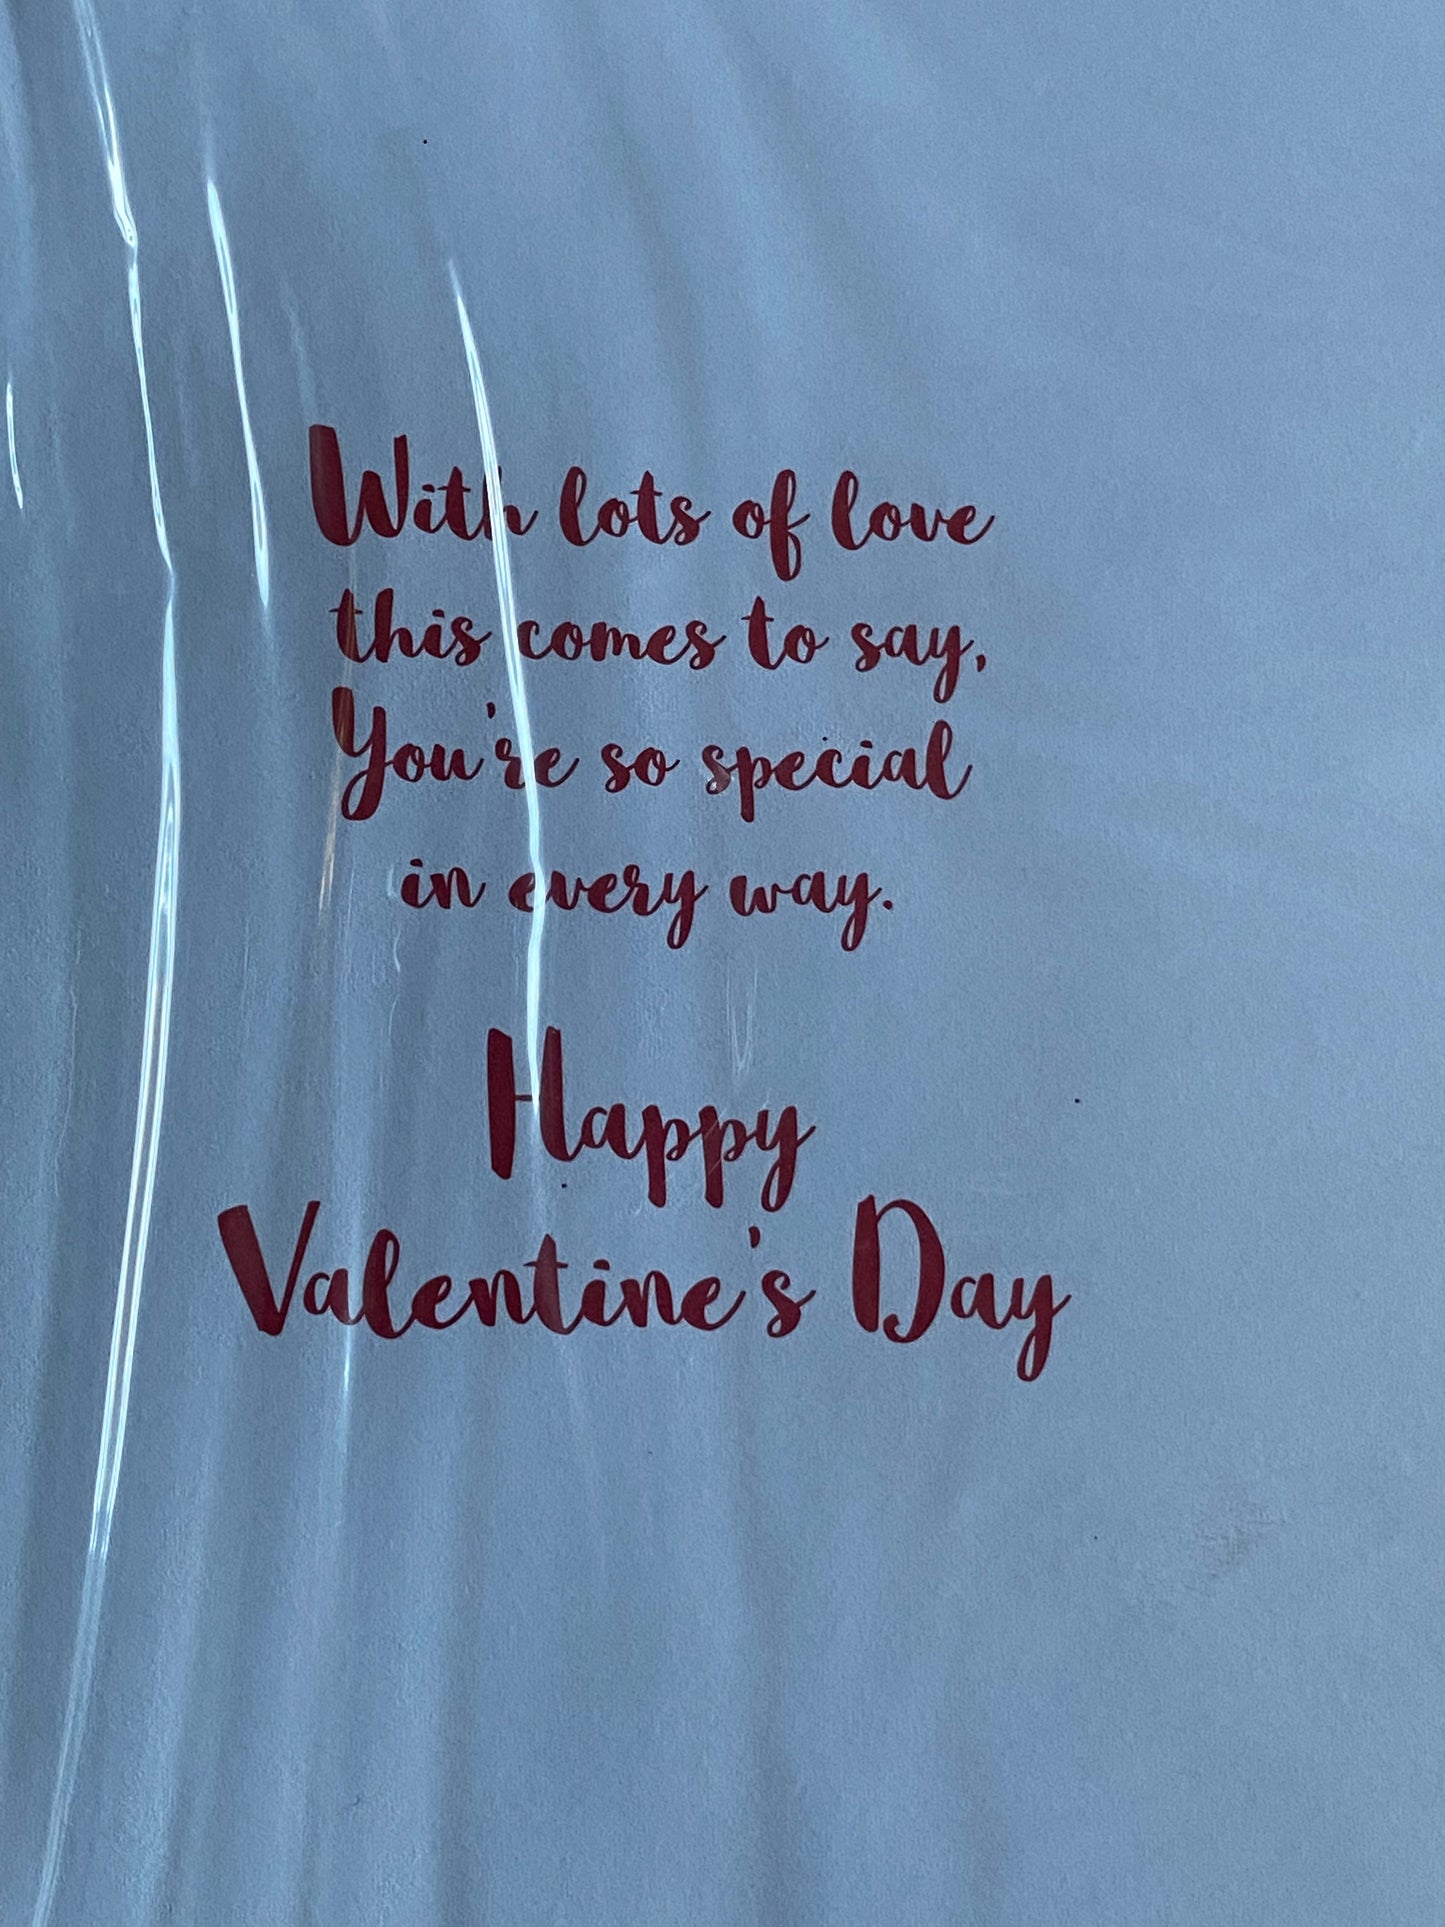 With lots of love
this comes to say,
You're so special
in every way.
Happy
Valentine's Day